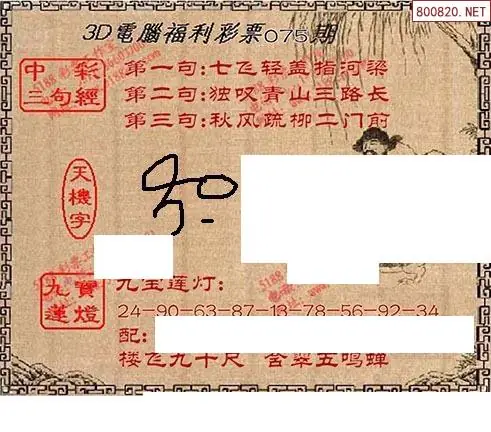 800820.NET
3D電腦福利彩票075期
中彩三句經
第一句:七飞轻盖指河梁
第二句:独叹青山三路长
第三句:秋风疏柳二门前
天機字
九寶蓮燈
九宝莲灯:
24-90-63-87-13-78-56-92-34
配:
楼飞九十尺 含翠五鸣蝉